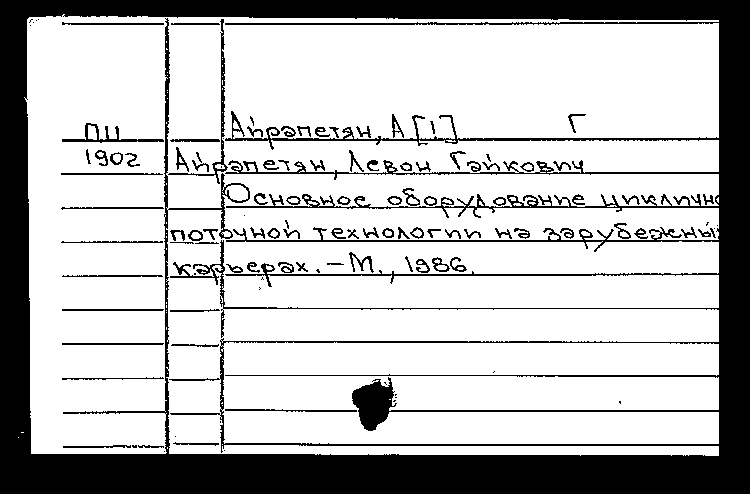 ПЦ Айрапетян, А [1] Г
1902 Айрапетян, Левон Гайкович
Основное оборудование циклично
поточной технологии на зарубежны
карьерах. – М., 1986.